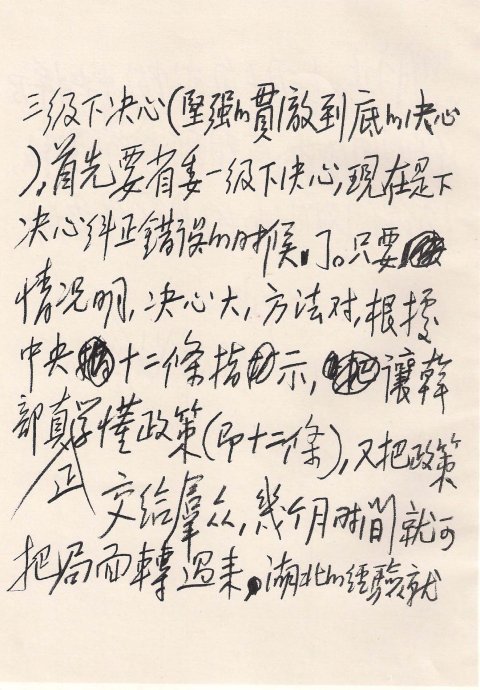 三级下决心(坚强的貫澈到底的决心
),首先要省委一级下决心,现在是下
决心纠正错误的时候了。只要
情况明,决心大,方法对,根据
中央十二條指示,讓幹
部真学懂政策(即十二條),又把政策
正
交给羣众,幾个月时间就可
把局面轉过来,湖北的经验就